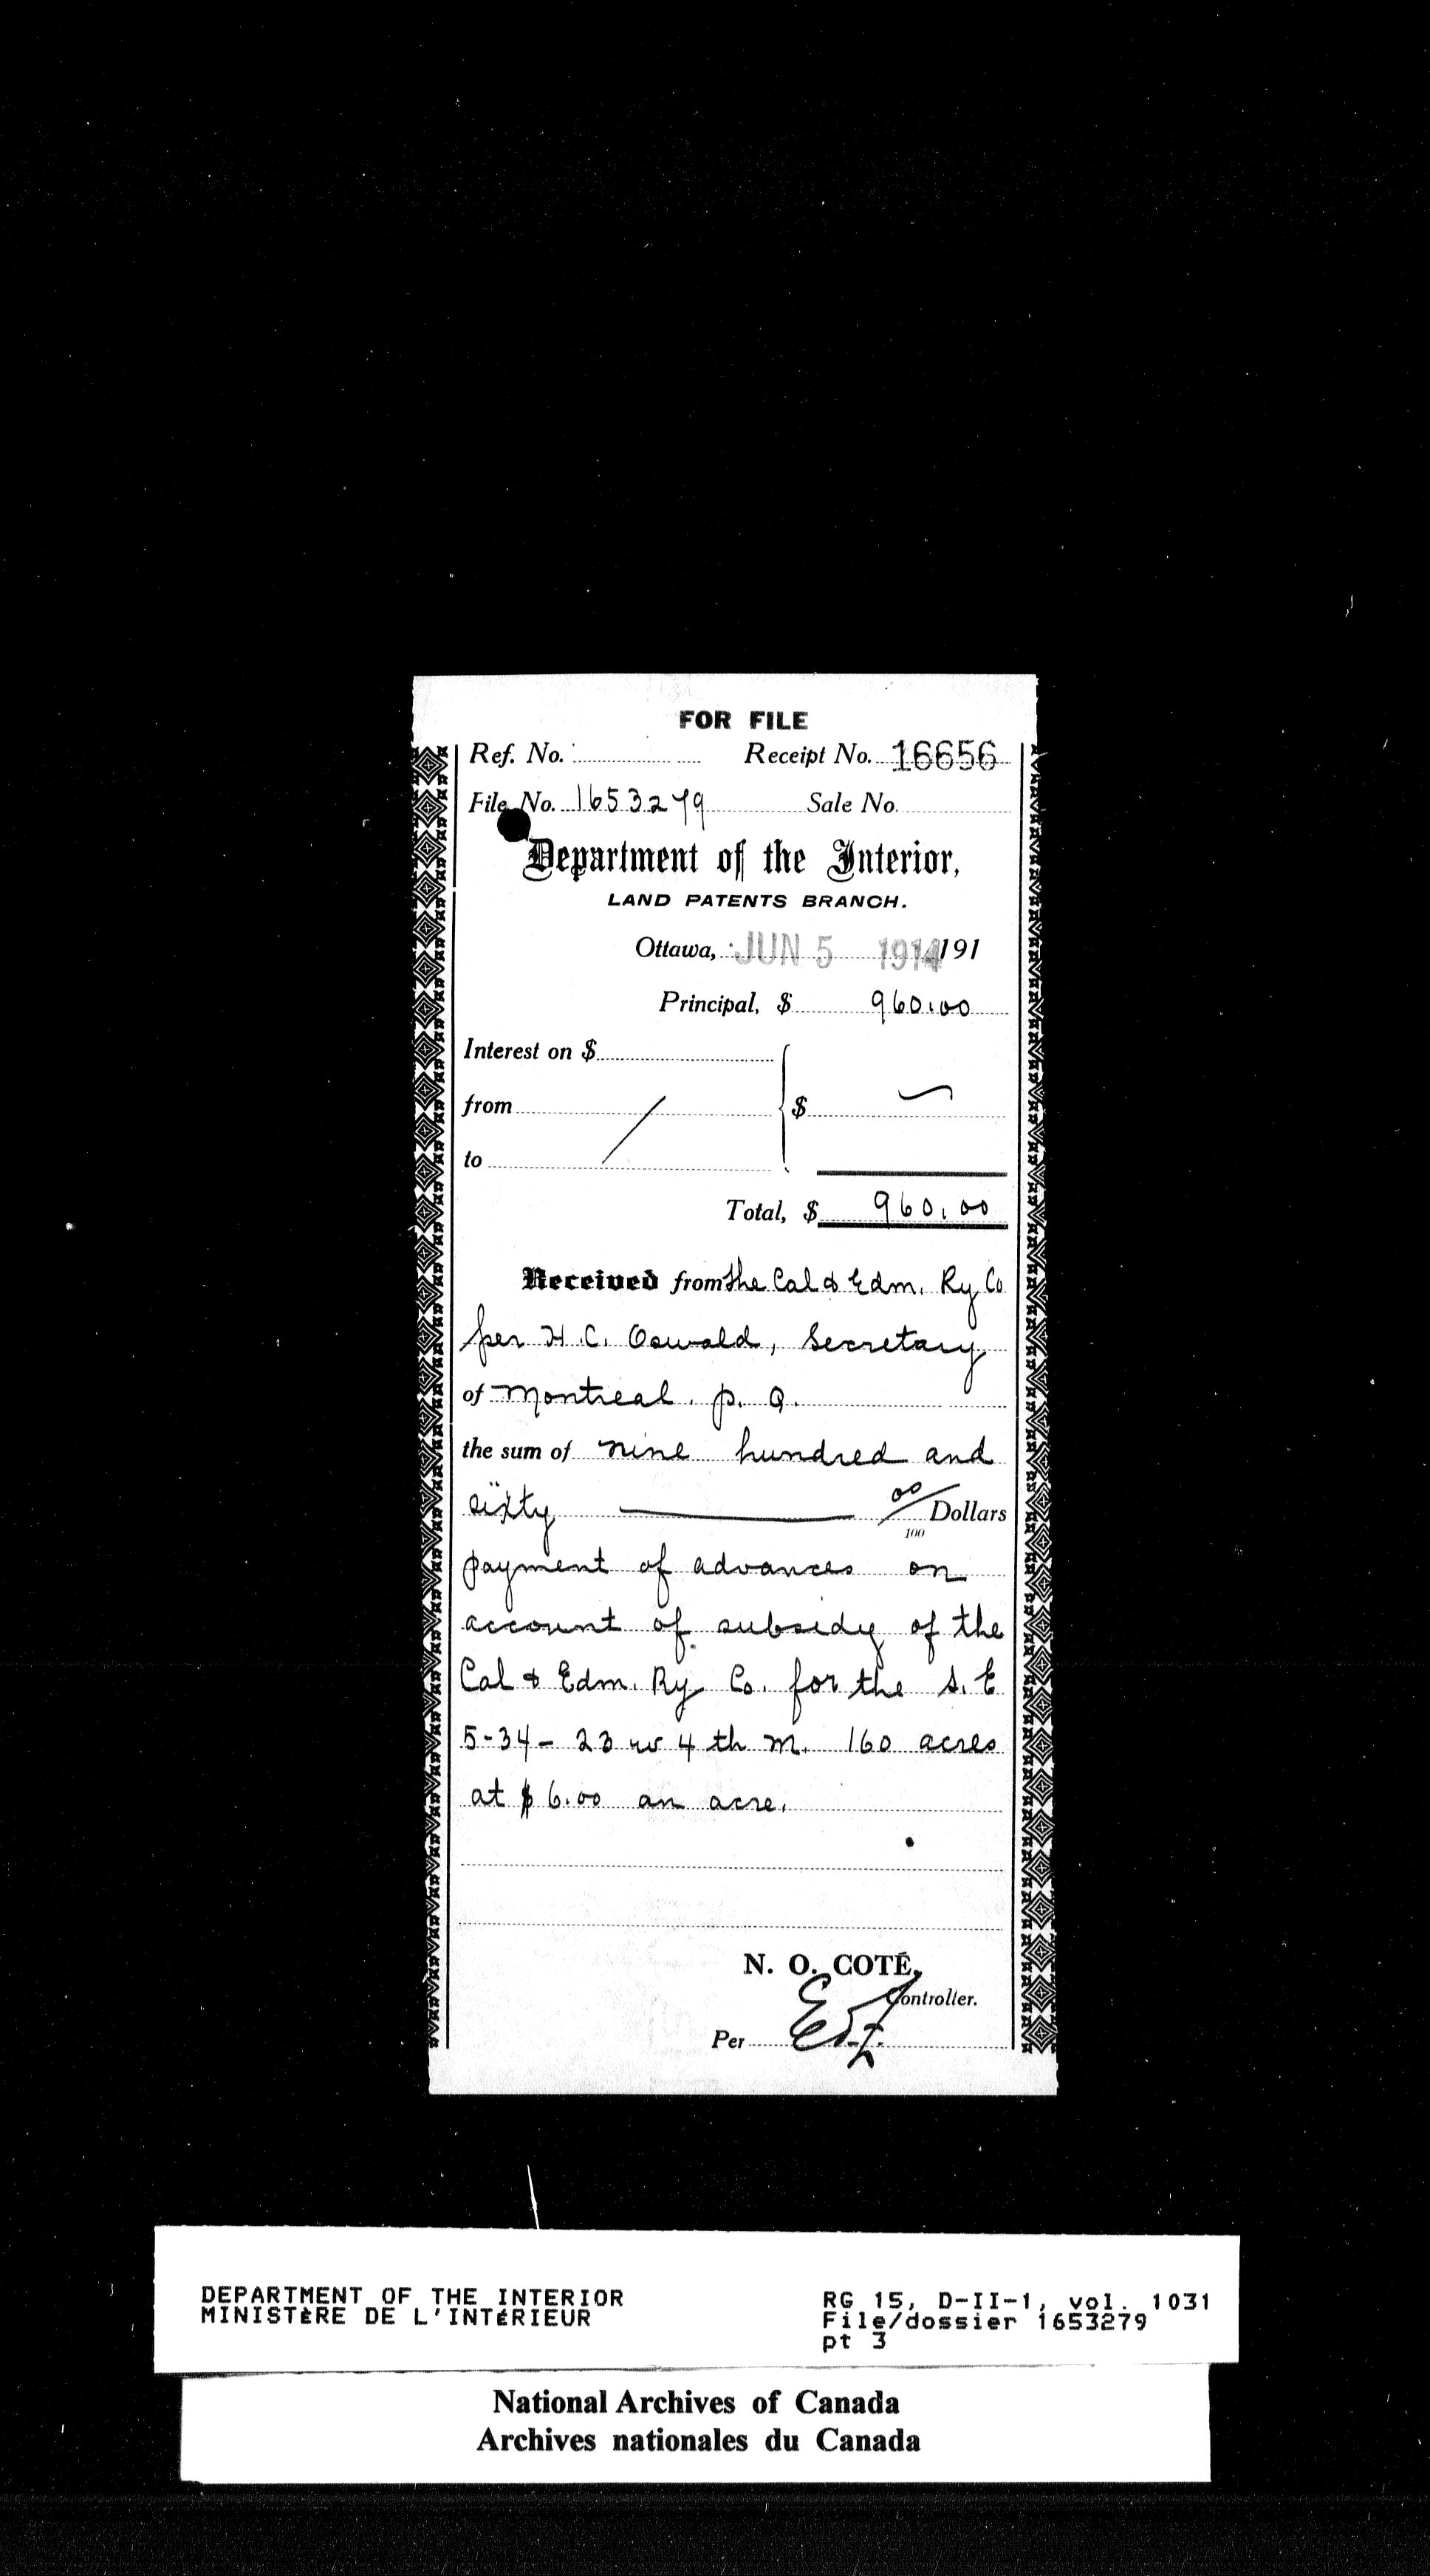 FOR FILE
Ref. No. Receipt No. 16656
File No. 1653279 Sale No.
Department of the Interior,
LAND PATENTS BRANCH.
Ottawa, JUN 5 1914 191
Principal, $ 960.00
Interest on $
from $
to
Total, $ 960.00
Received from the Cal & Edm. Ry Co
per H. C. Oswald, Secretary
of Montreal. P. Q.
the sum of nine hundred and
sixty 00/100 Dollars
payment of advances on
account of subsidy of the
Cal & Edm. Ry Co. for the S. E
5-34-23 w 4 th M. 160 acres
at $6.00 an acre.
N. O. COTÉ,
Controller.
Per
DEPARTMENT OF THE INTERIOR RG 15, D-II-1, vol. 1031
MINISTÈRE DE L'INTÉRIEUR File/dossier 1653279
pt 3
National Archives of Canada
Archives nationales du Canada